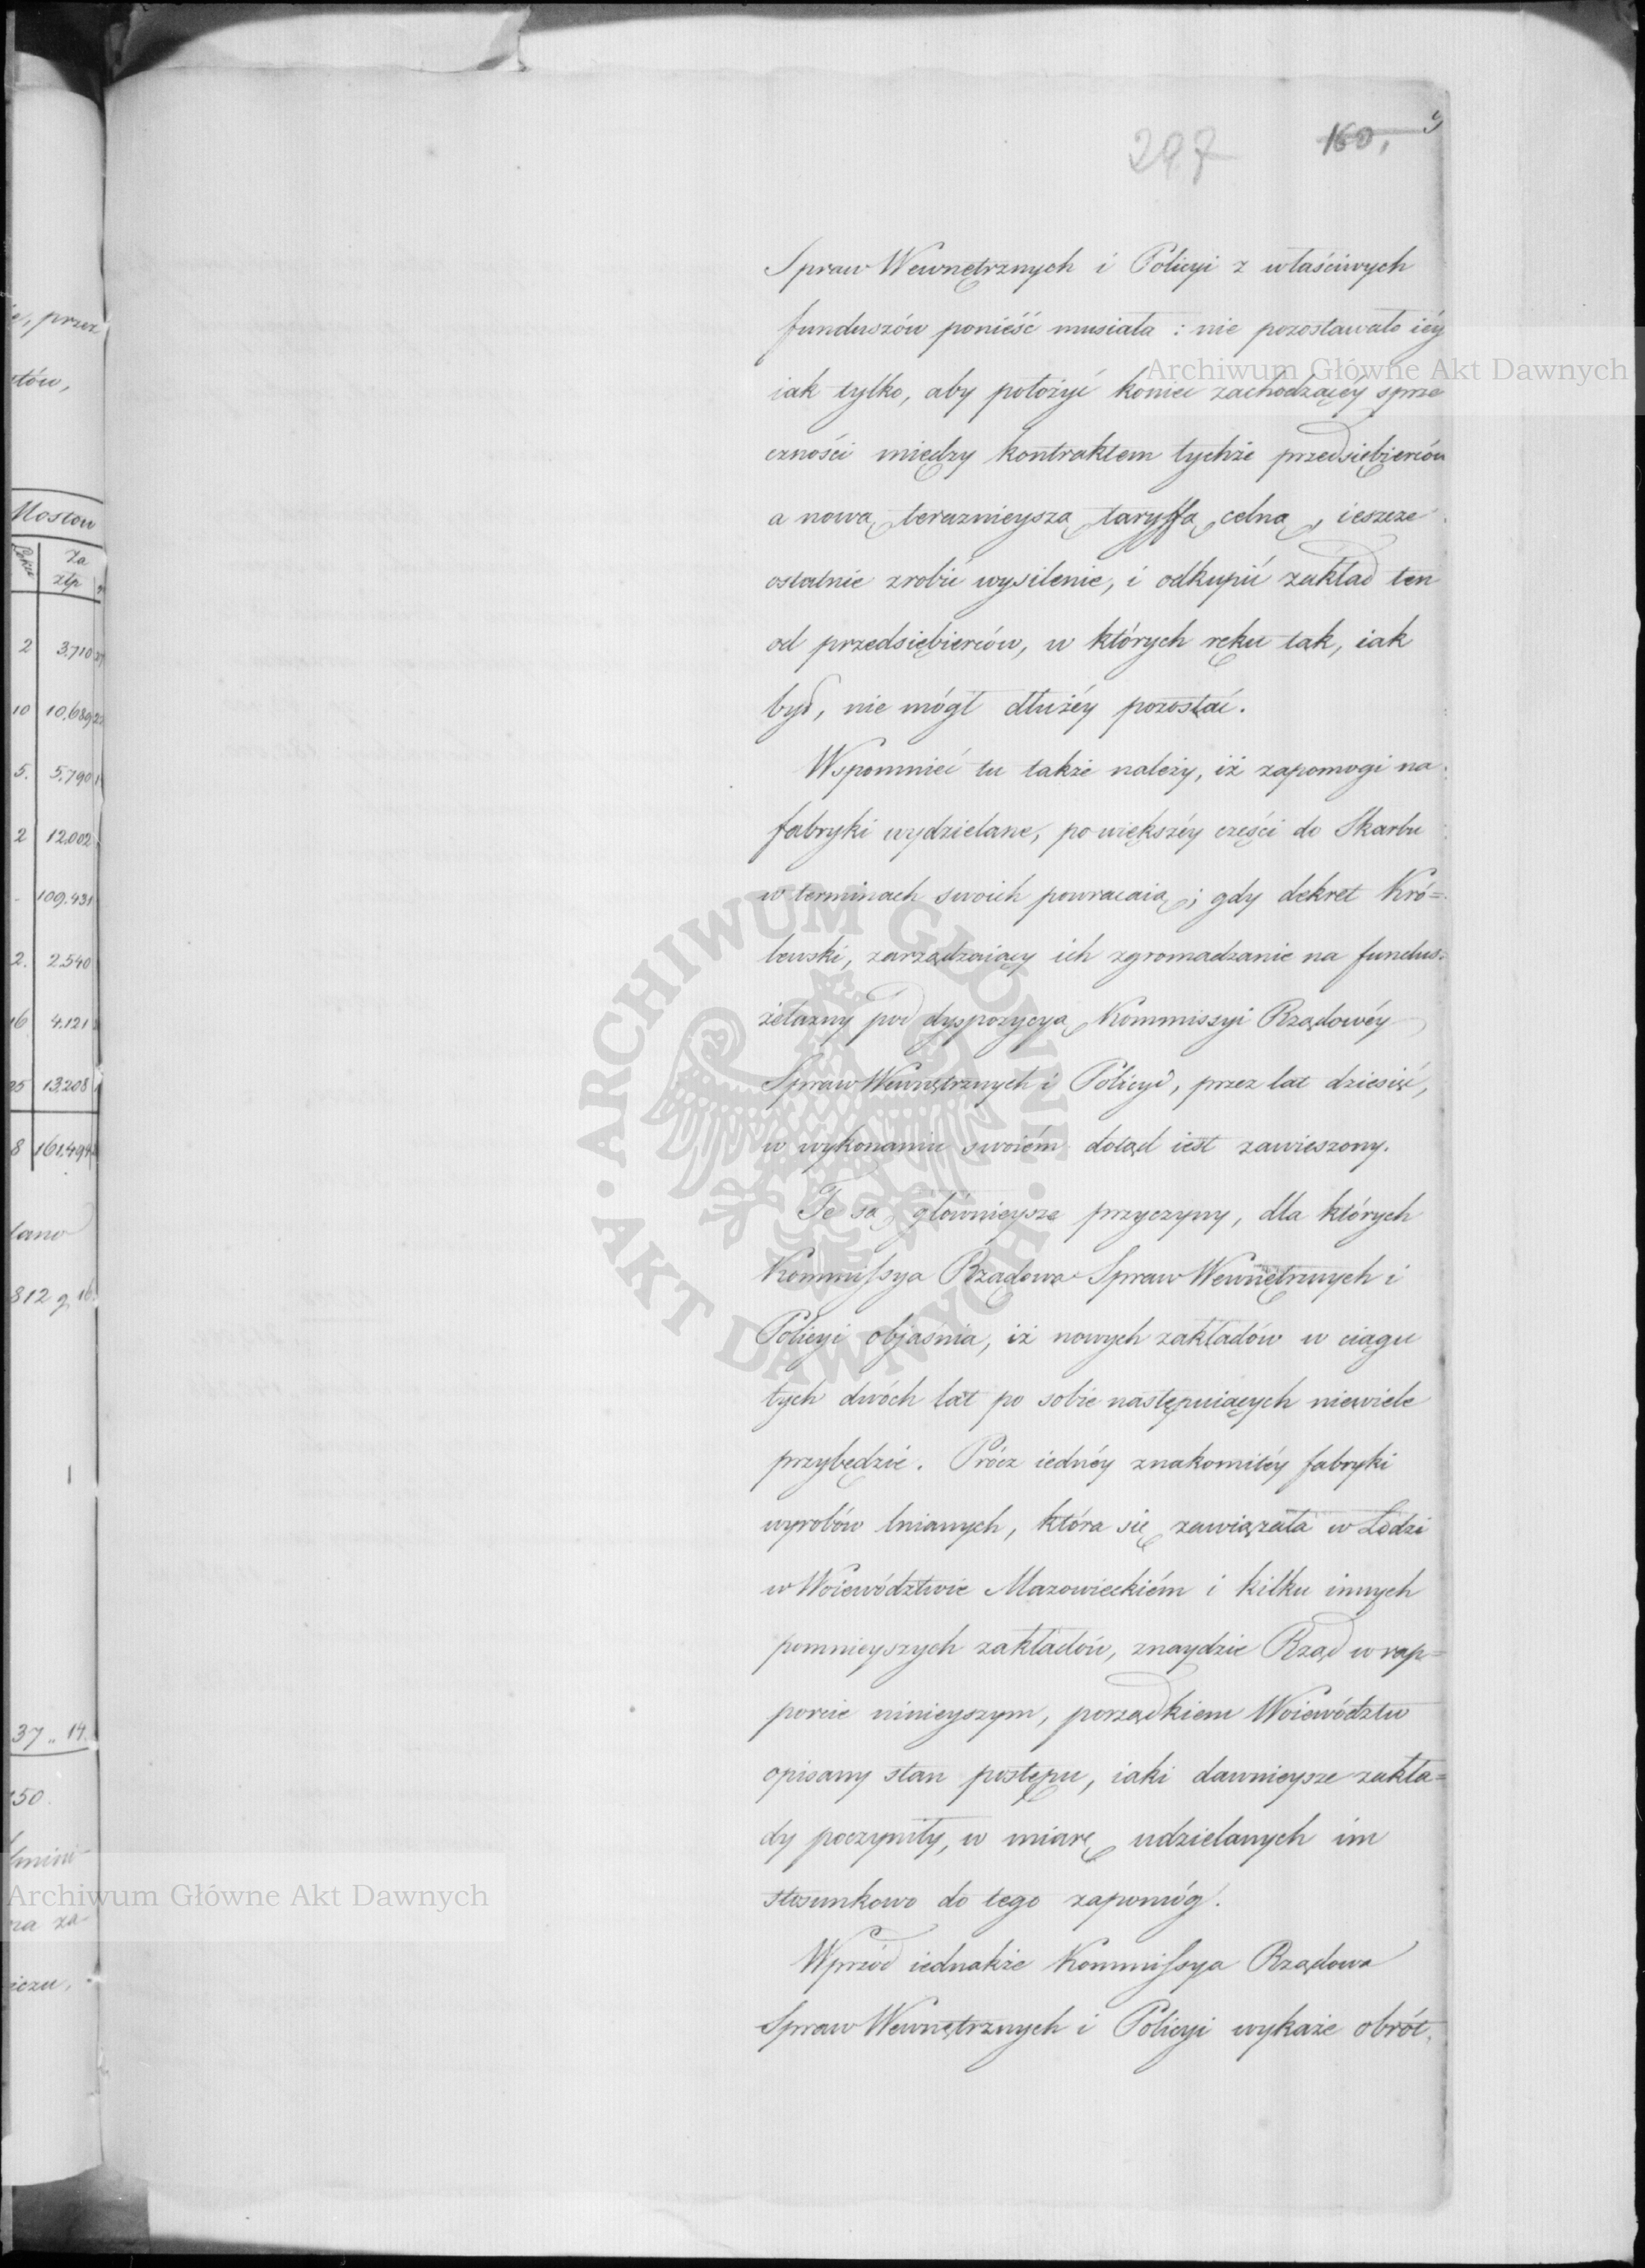 297
160,
Spraw Wewnętrznych i Policyi z właściwych
funduszów ponieść musiała: nie pozostawało iéy
iak tylko, aby położyć koniec zachodzącéy sprze
czności między kontraktem tychże przedsiębierców
a nową teraznieyszą taryffą celną, ieszcze
ostatnie zrobić wysilenie, i odkupić zakład ten
od przedsiębierców, w których ręku tak, iak
był, nie mógł dłużéy pozostać.
Wspomnieć tu także należy, iż zapomogi na
fabryki wydzielane, po większéy części do Skarbu
w terminach swoich powracaią; gdy dekret Kró=
lewski, zarządzaiący ich zgromadzanie na fundus=
żelazny pod dyspozycyą Kommissyi Rządowéy
Spraw Wewnętrznych i Policyi, przez lat dziesięć,
w wykonaniu swoiém dotąd iest zawieszony.
Te są główniejsze przyczyny, dla których
Kommissya Rządowa Spraw Wewnętrznych i
Policyi objaśnia, iż nowych zakładów w ciągu
tych dwóch lat po sobie następuiących niewiele
przybędzie. Prócz iednéy znakomitéy fabryki
wyrobów lnianych, która się zawiązała w Łodzi
w Woiewództwie Mazowieckiém i kilku innych
pomnieyszych zakładów, znaydzie Rząd w rap=
porcie ninieyszym, porządkiem Woiewództw
opisany stan postępu, iaki dawnieysze zakła=
dy poczyniły, w miarę udzielanych im
stosunkowo do tego zapomóg.
Wprzód iednakże Kommissya Rządowa
Spraw Wewnętrznych i Policyi wykaże obrót
przez
tów,
Mostow
Za
złp
2 3,710
10 10,689
5. 5,790
2 12,002
- 109,431
2. 2,540
16 4,121
25 13,208
8 161,494
812 g 16.
37 " 14.
50.
za-
Archiwum Główne Akt Dawnych
Archiwum Główne Akt Dawnych
ARCHIWUM GŁÓWNE · AKT DAWNYCH ·